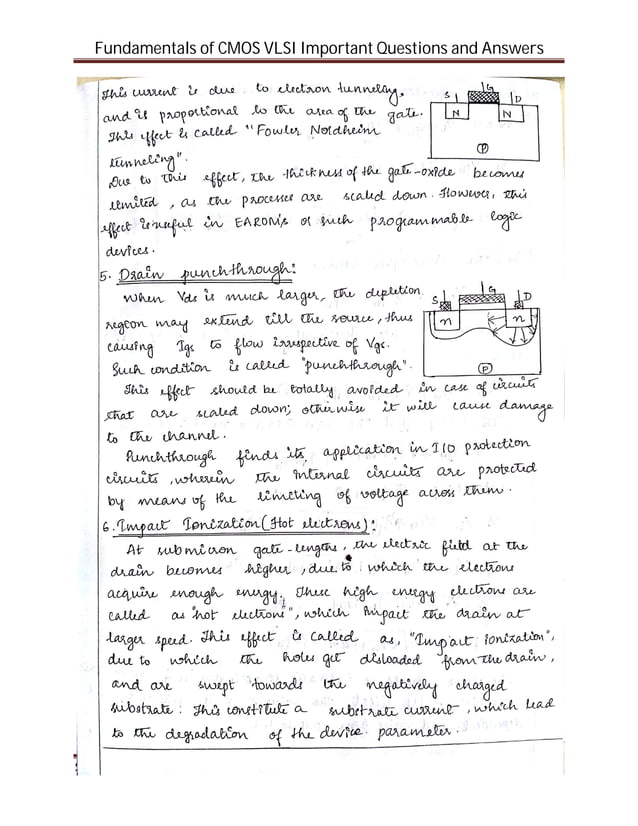 Fundamentals of CMOS VLSI Important Questions and Answers
This current is due to electron tunneling,
and is proportional to the area of the gate.
This effect is called "Fowler Noldheim
tunneling".
Due to this effect, the thickness of the gate-oxide becomes
limited, as the processes are scaled down. However, this
effect is useful in EAROM's or such programmable logic
devices.
S G D
N N
P
5. Drain punchthrough:
When Vds is much larger, the depletion
region may extend till the source, thus
causing Igs to flow irrespective of Vgs.
Such condition is called "punchthrough".
S G D
n n
P
This effect should be totally avoided in case of circuits
that are scaled down; otherwise it will cause damage
to the channel.
Punchthrough finds its application in I/O protection
circuits, wherein the internal circuits are protected
by means of the limiting of voltage across them.
6. Impact Ionization (Hot electrons):
At submicron gate-lengths, the electric field at the
drain becomes higher, due to which the electrons
acquire enough energy. These high energy electrons are
called as "hot electrons", which impact the drain at
larger speed. This effect is called as, "Impact ionization",
due to which the holes get disloaded from the drain,
and are swept towards the negatively charged
substrate. This constitute a substrate current, which lead
to the degradation of the device parameter.